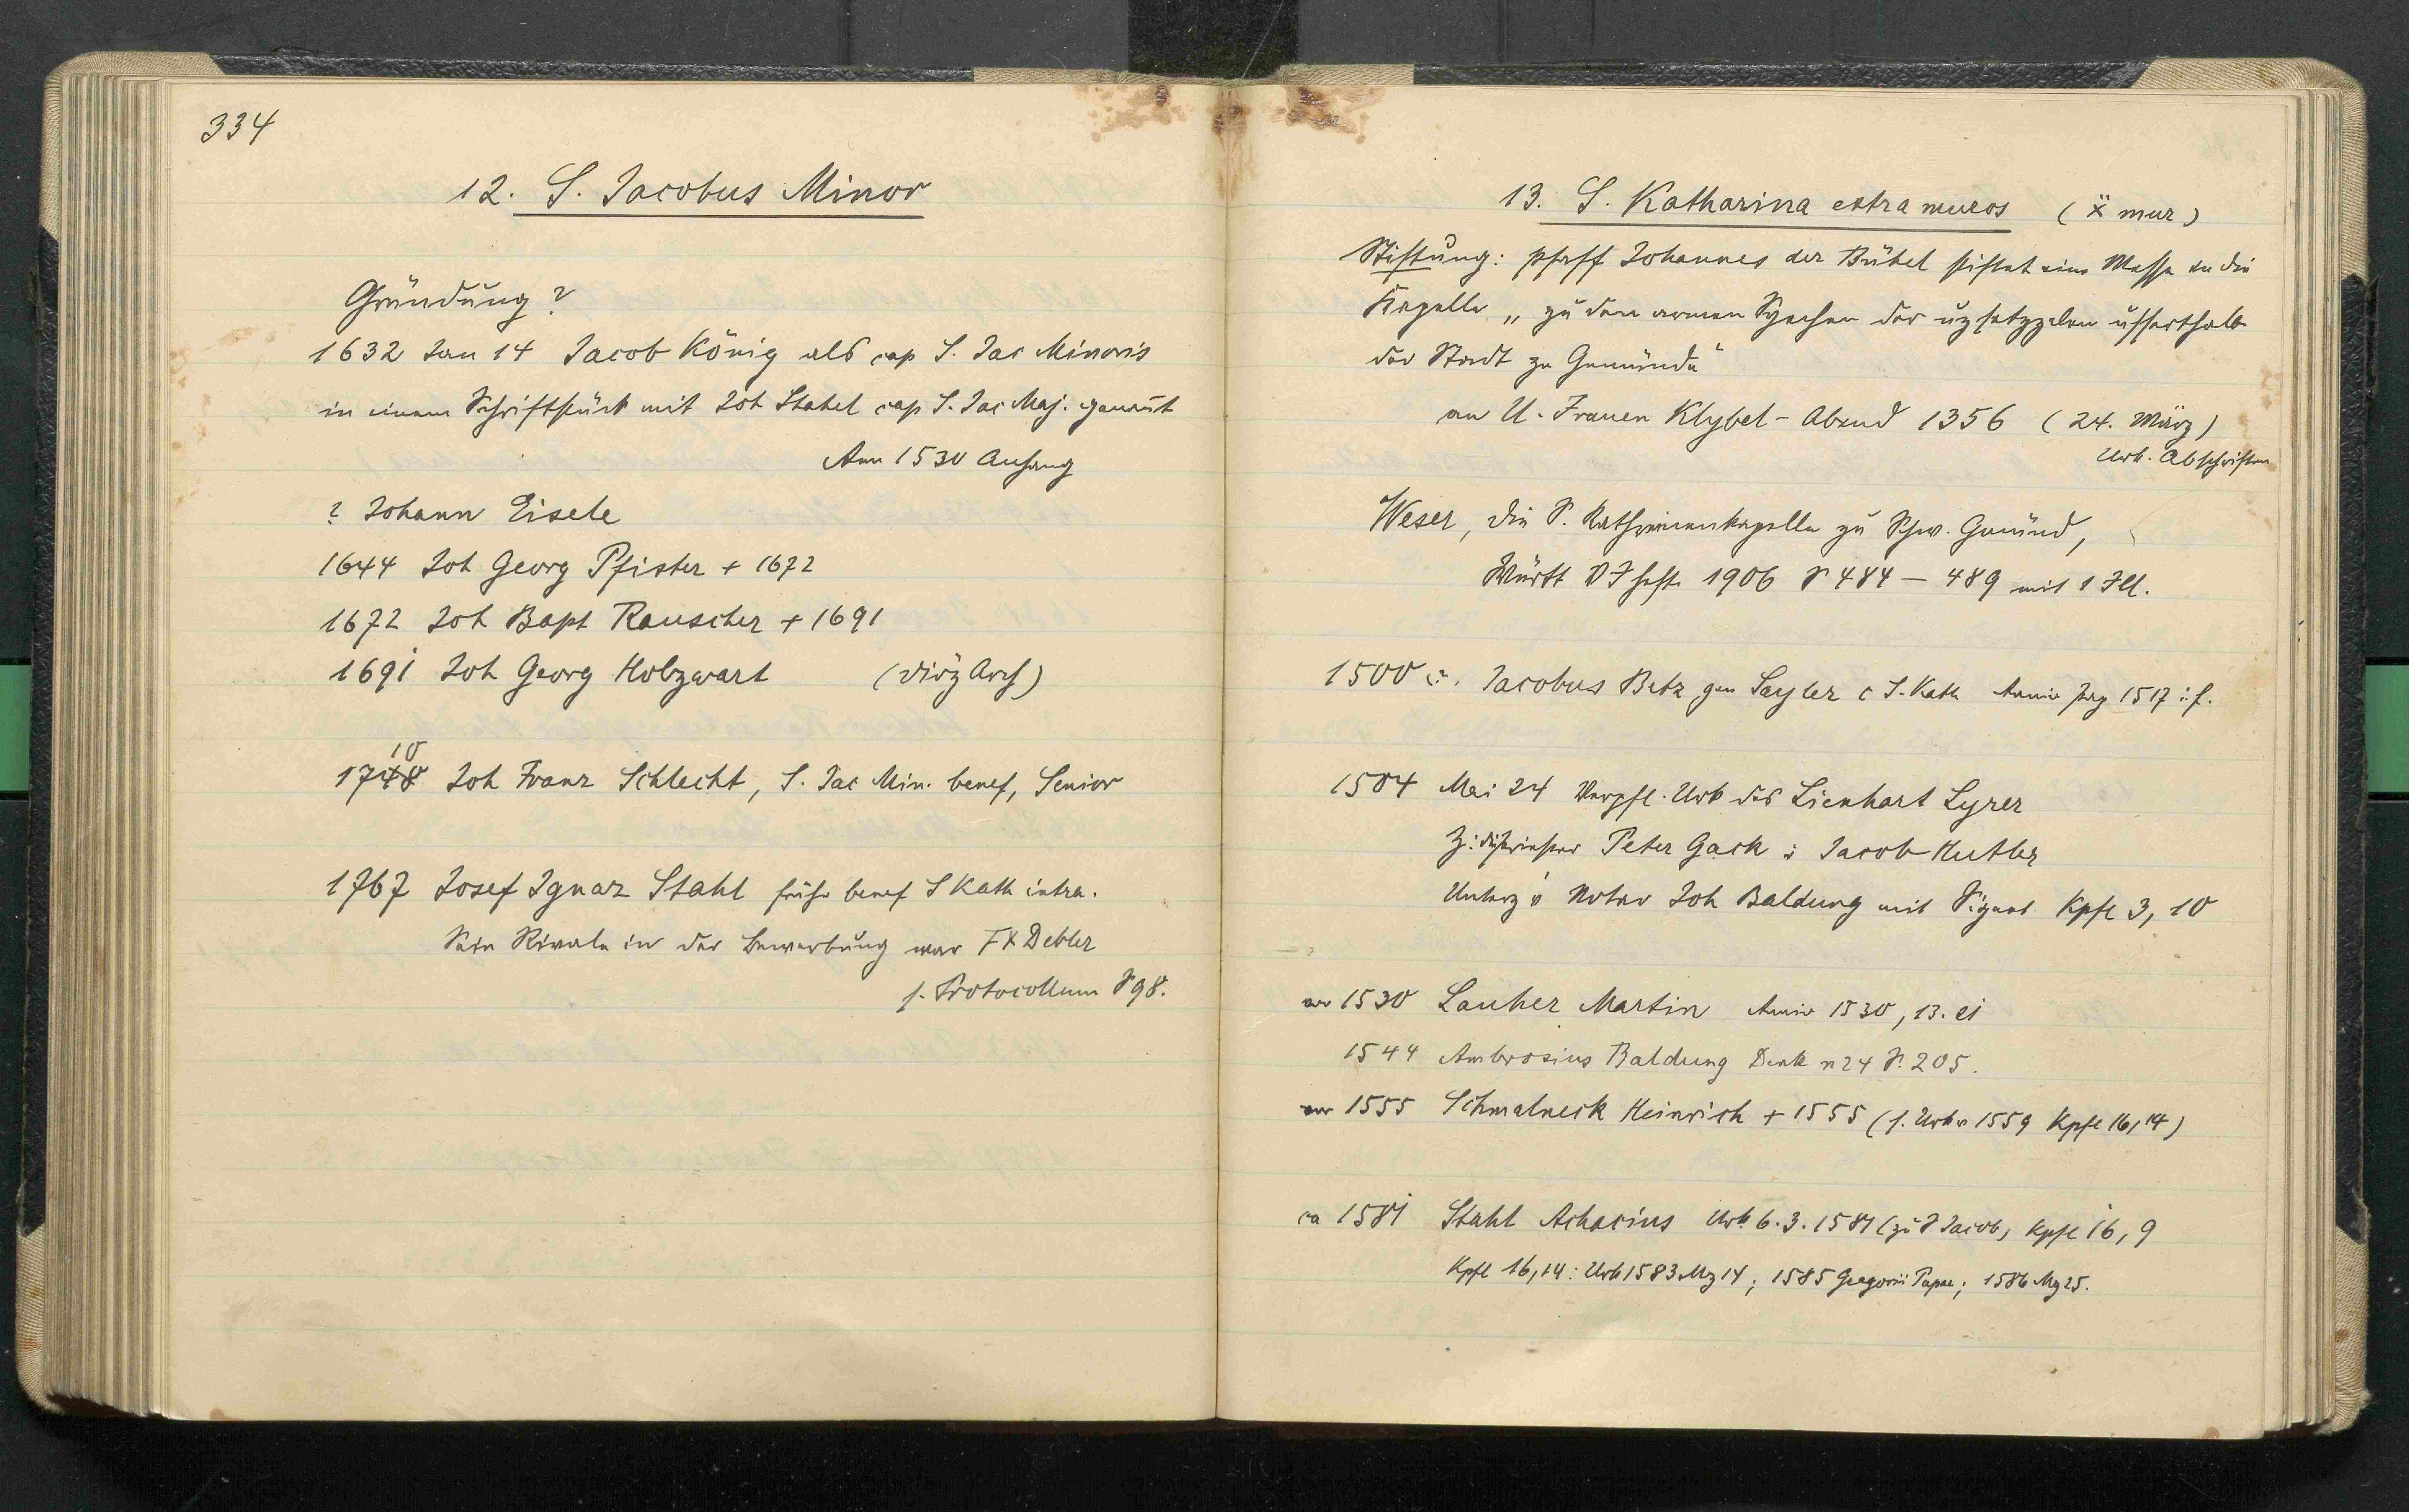 334
12. S. Jacobus Minor
Gründung?
1632 Jan 14 Jacob König als cap S. Jac Minoris
in einem Schriftstück mit Joh Stahel cap S. Jac Maj. genannt
Ann 1530 Anhang
? Johann Eisele
1644 Joh Georg Pfister + 1672
1672 Joh Bapt Rauscher + 1691
1691 Joh Georg Holzwart (Diöz Arch)
10
1748 Joh Franz Schlecht, S. Jac Min. benef, Senior
1767 Josef Ignaz Stahl früher benef S Kath intra.
Sein Rivale in der Bewerbung war FX Debler
s. Protocollum S 98.
13. S. Katharina extra muros (x mur)
Stiftung: Pfaff Johannes der Bübel stiftet eine Messe in die
Kapelle „zu den armen Syechen der uzsetzzelen usserthalb
der Stadt ze Gemünde"
an U. Frauen Klybel-Abend 1356 (24. März)
Urk. Abschriften
Weser, die S. Katharinenkapelle zu Schw. Gmünd,
Württ VJhefte 1906 S 484 – 489 mit 1 Ill.
1500 Jacobus Betz gen Sayler c S. Kath Anniv 1517 i. f.
1504 Mai 24 Verpfl. Urk des Lienhart Lyrer
Peter Gack & Jacob Hutler
Unterz v Notar Joh Baldung mit Signet Kpfl 3, 10
vor 1530 Lauher Martin Anniv 1530, 13. 21
1544 Ambrosius Baldung Denk n 24 S. 205.
vor 1555 Schmalneck Heinrich + 1555 (s. Urk v 1559 Kpfl 16, 14)
ca 1581 Stahl Achacius Urk 6. 3. 1581 (zu S Jacob, Kpfl 16, 9
Kpfl 16, 14: Urk 1583 Mz 14; 1585 Gregorii Papae; 1586 Mz 25.